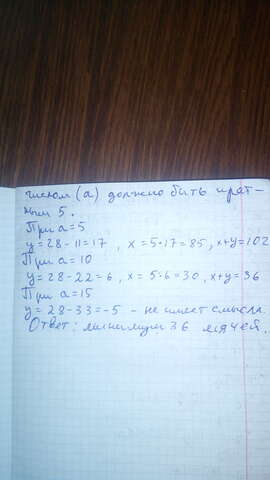 числом (а) должно быть крат-
ным 5.
При а=5
y=28-11=17, x=5·17=85, x+y=102
При а=10
y=28-22=6, x=5·6=30, x+y=36
При а=15
y=28-33=-5 - не имеет смысла.
Ответ: минимум 36 мячей.